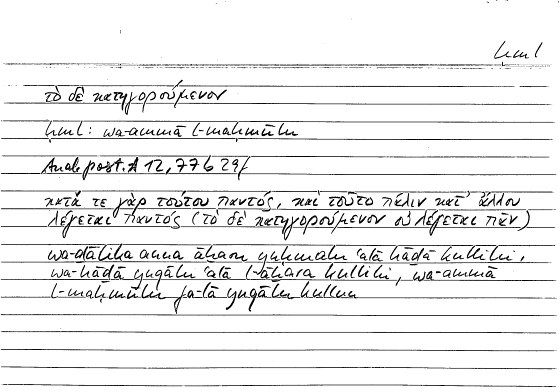 ḥml
τὸ δὲ κατηγορούμενον
ḥml: wa-ammā l-maḥmūlu
Anal. post. A 12, 77b 29f
κατά τε γὰρ τούτου παντός, καὶ τοῦτο πάλιν κατ' ἄλλου
λέγεται παντός (τὸ δὲ κατηγορούμενον οὐ λέγεται πᾶν)
wa-ḏālika anna āḫara yuḥmalu ʿalā hāḏā kullihi,
wa-hāḏā yuqālu ʿalā l-āḫara kullihi, wa-ammā
l-maḥmūlu fa-lā yuqālu kullun